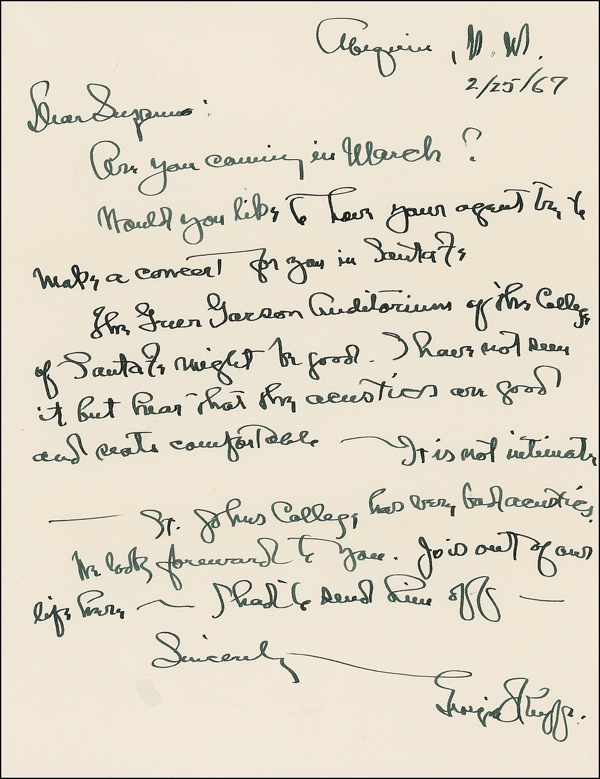 Abiquiu, N.M.
2/25/67
Dear
Are you coming in March?
Would you like to have your agent try to
make a concert for you in Santa Fe
The Greer Garson Auditorium of the College
of Santa Fe might be good. I have not seen
it but hear that the acustics are good
and seats comfortable — It is not intimate
— St. Johns College has very bad acustics.
We look forward to you. Jo is out of our
life here — I had to send him off —
Sincerely —
Georgia O'Keeffe.